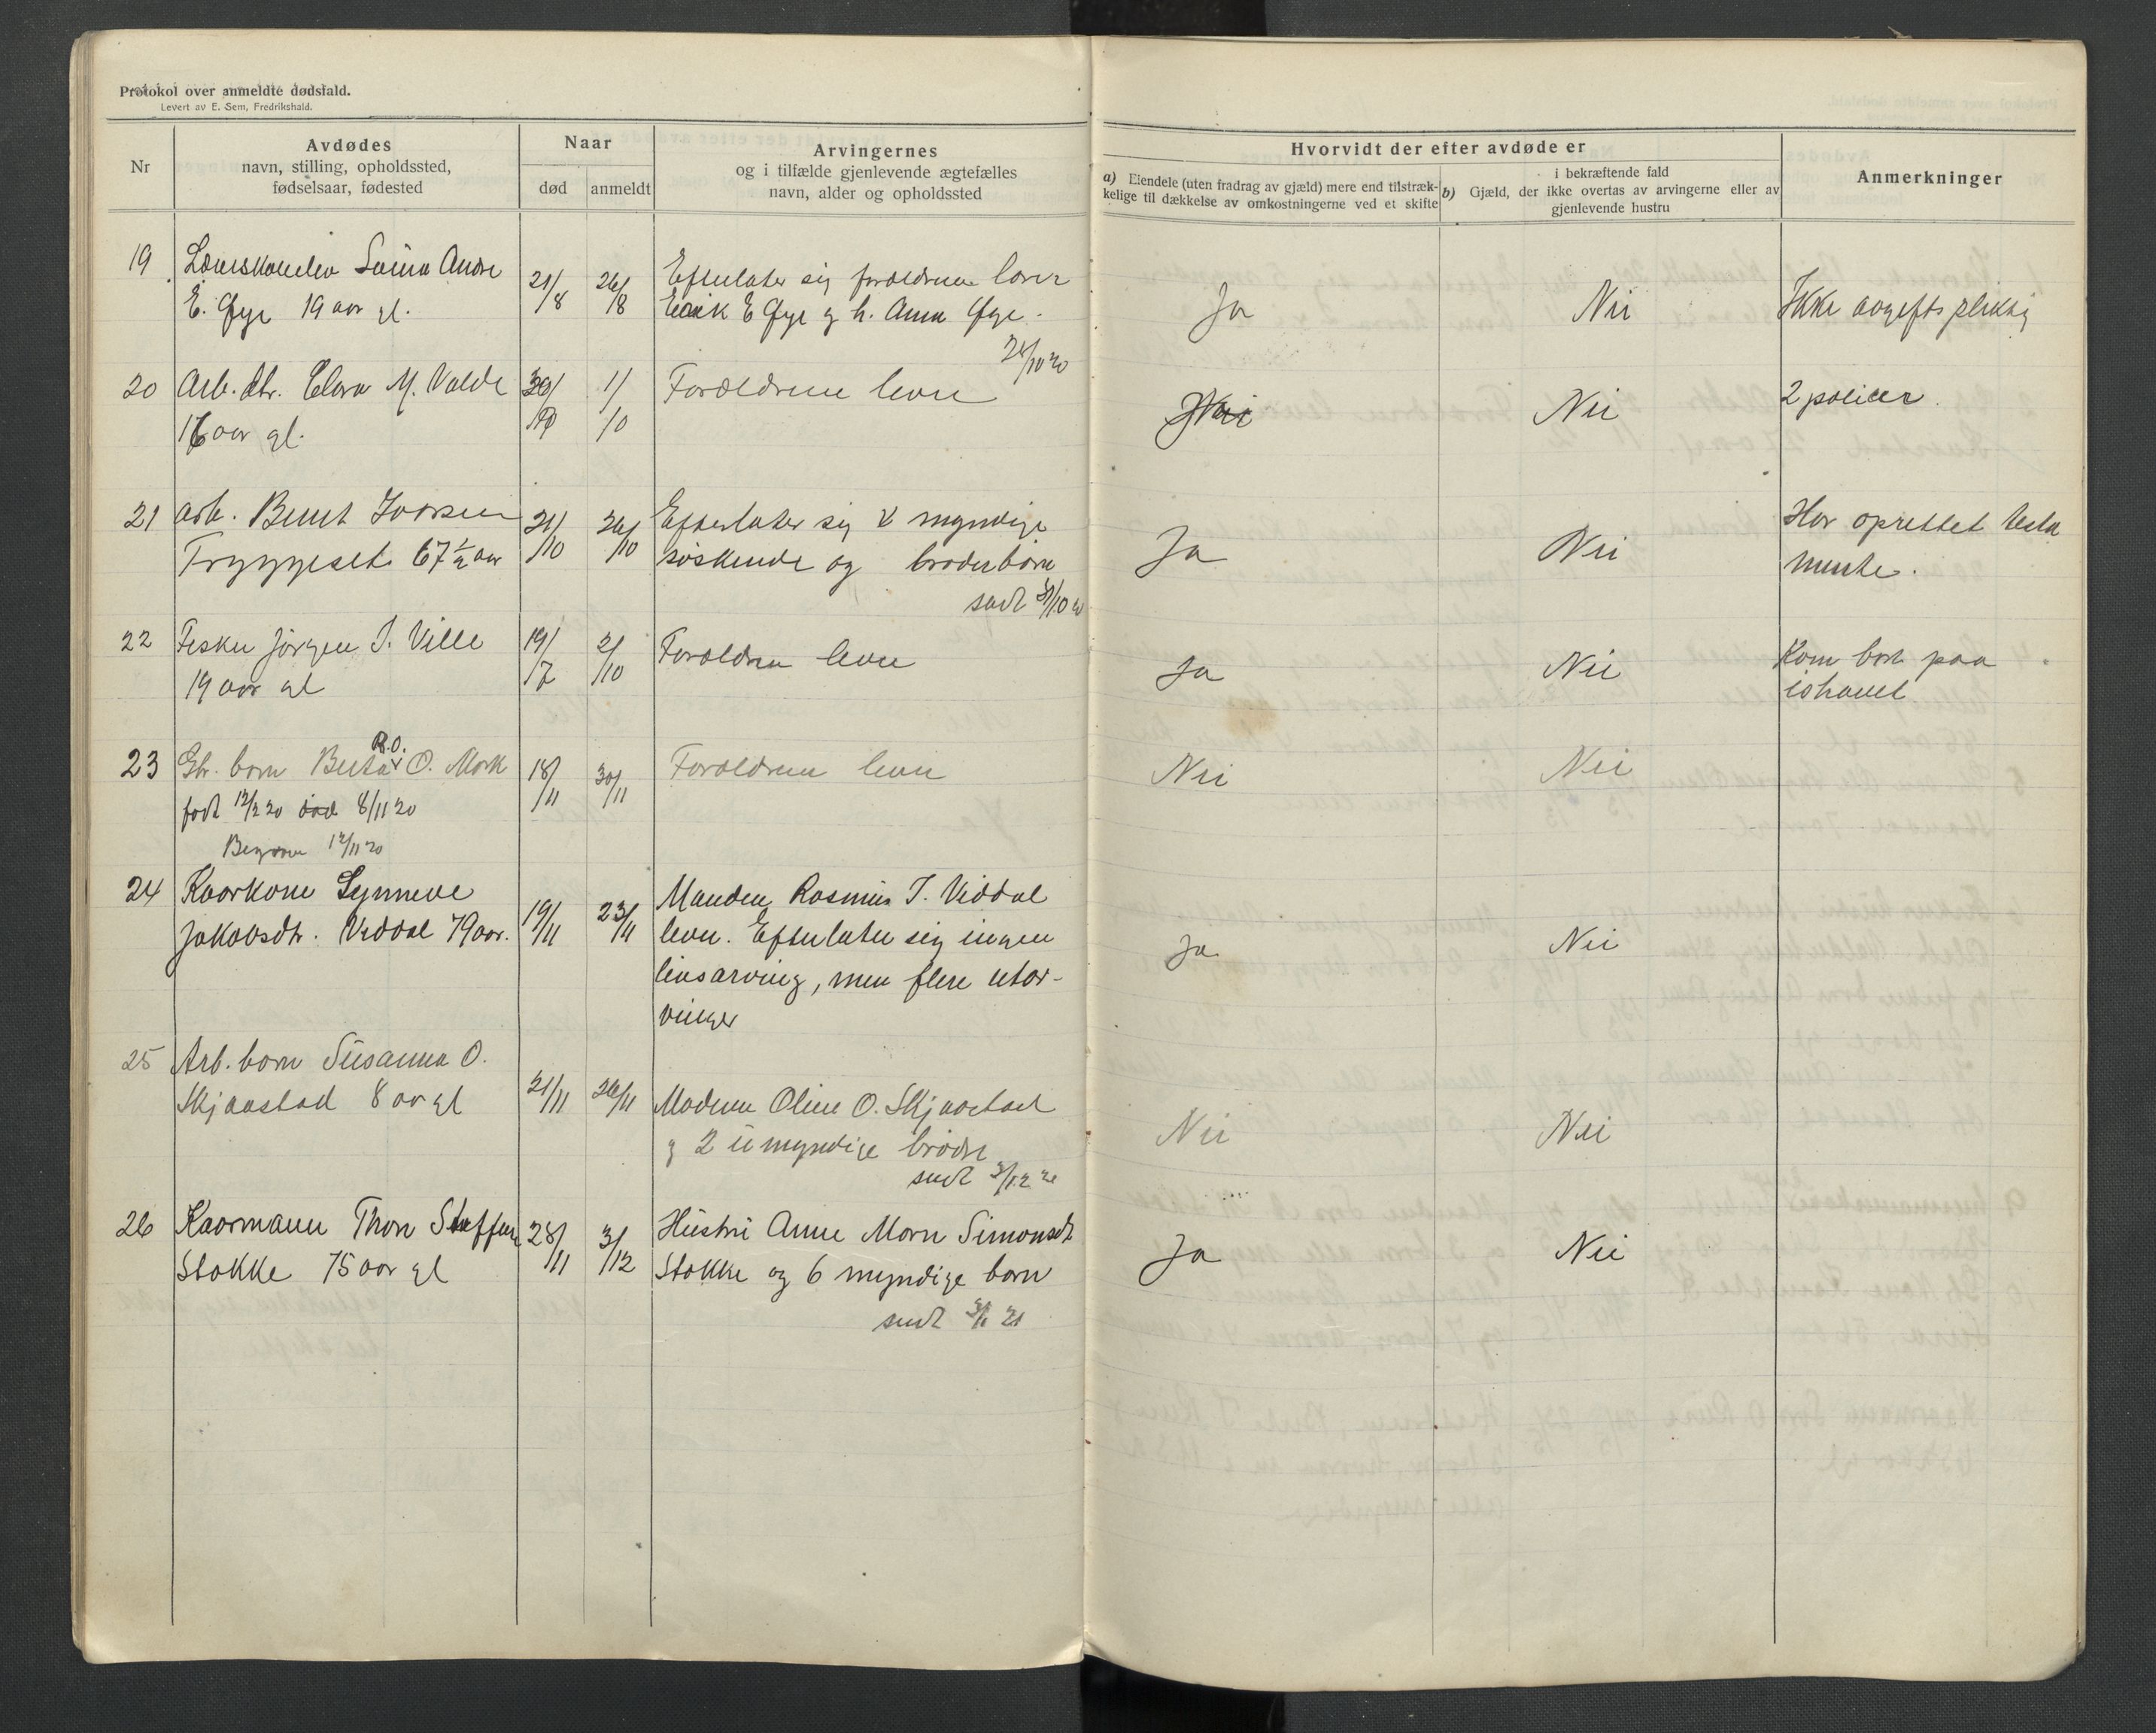 Protokol over anmeldte dødsfald.
Levert av E. Sem, Fredrikshald.
Nr
Avdødes
navn, stilling, opholdssted,
fødselsaar, fødested
Naar
død
anmeldt
Arvingernes
og i tilfælde gjenlevende ægtefælles
navn, alder og opholdssted
Hvorvidt der efter avdøde er
a) Eiendele (uten fradrag av gjæld) mere end tilstræk-
kelige til dækkelse av omkostningerne ved et skifte
i bekræftende fald
b) Gjæld, der ikke overtas av arvingerne eller av
gjenlevende hustru
Anmerkninger
19
E. Øye 19 aar gl.
21/8
26/8
Efterlater sig forældrene lærer
E Øye g h. Anna Øye.
Ja
Nei
Ikke avgiftspliktig
28/10 20
20
Arb. dtr. Clara M. Valde
16 aar gl.
1/10
Forældrene lever
Nei
2 policer.
21
Arb. Bernt Ivarsen
Tryggeset 67 1/2 aar
21/10
26/10
Efterlater sig myndige
søskende og broderbørn
sendt 31/10 20
Ja
Nei
Har oprettet testa
mente.
22
Fisker Jørgen J. Ville
19 aar gl
19/7
2/10
Forældre lever
Ja
Nei
Kom bort paa
ishavet
23
R.O.
Gbr. barn Berta O. Mork
født 12/2 20 død 8/11 20
Begravn 12/11 20
18/11
30/11
Forældrene lever
Nei
Nei
24
Kaarkone Synneve
Jakobsdtr. Viddal 79 aar.
19/11
23/11
Manden Rasmus J. Viddal
lever. Efterlater sig ingen
livsarving, men flere utar-
vinger
Ja
Nei
25
Arb. barn Susanna O.
Skjaastad 8 aar gl
21/11
26/11
Moderen Oline O. Skjaastad
g 2 umyndige brødre
sendt 3/12 20
Nei
Nei
26
Kaarmann Thore Steffen
Stokke 75 aar gl
28/11
3/12
Hustru Anne Marn Simonsdt
Stokke og 6 myndige barn
sendt 21
Ja
Nei